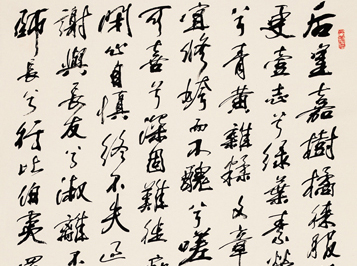 后皇嘉樹橘徠服
更壹志兮綠葉素榮
兮青黃雜糅文章
宜修姱而不醜兮嗟
可喜兮深固難徙廓
閉心自慎終不失過
謝與長友兮淑離不
師長兮行比伯夷置